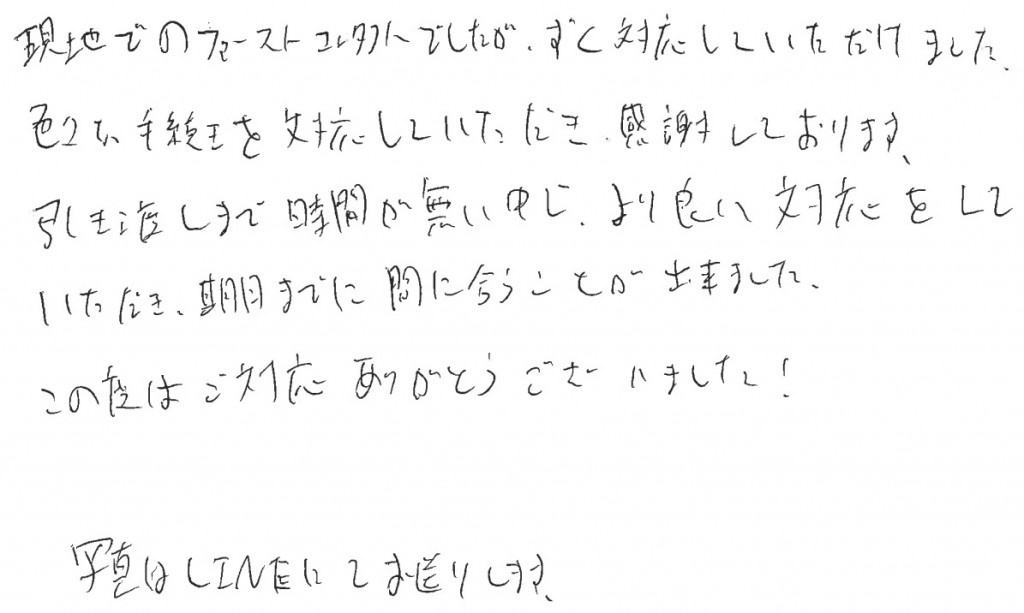 現地でのファーストコンタクトでしたが、すぐ対応していただけました、
色々な手続きを対応していただき、感謝しております、
引き渡しまで時間が無い中で、より良い対応をして
いただき、期日までに間に合うことが出来ました、
この度はご対応ありがとうございました!
写真はLINEにてお送りします、